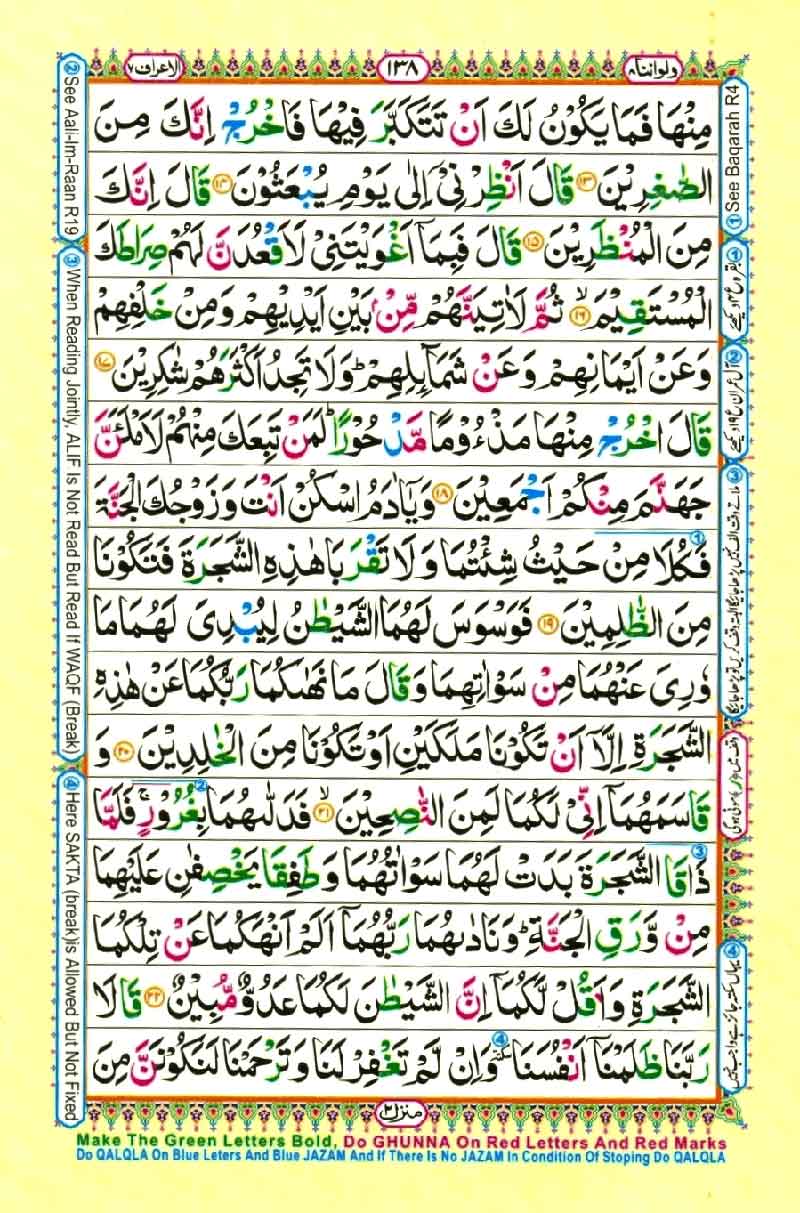 ولواننا ۸
۱۳۸
الاعراف ۷
مِنْهَا فَمَا يَكُوْنُ لَكَ اَنْ تَتَكَبَّرَ فِيْهَا فَاخْرُجْ اِنَّكَ مِنَ
الصّٰغِرِيْنَ ۱۳ قَالَ اَنْظِرْنِيْۤ اِلٰى يَوْمِ يُبْعَثُوْنَ ۱۴ قَالَ اِنَّكَ
مِنَ الْمُنْظَرِيْنَ ۱۵ قَالَ فَبِمَاۤ اَغْوَيْتَنِيْ لَاَقْعُدَنَّ لَهُمْ صِرَاطَكَ
الْمُسْتَقِيْمَ ۱۶ۙ ثُمَّ لَاٰتِيَنَّهُمْ مِّنْۢ بَيْنِ اَيْدِيْهِمْ وَمِنْ خَلْفِهِمْ
وَعَنْ اَيْمَانِهِمْ وَعَنْ شَمَآئِلِهِمْ ؕ وَلَا تَجِدُ اَكْثَرَهُمْ شٰكِرِيْنَ ۱۷
قَالَ اخْرُجْ مِنْهَا مَذْءُوْمًا مَّدْحُوْرًا ؕ لَمَنْ تَبِعَكَ مِنْهُمْ لَاَمْلَـَٔنَّ
جَهَنَّمَ مِنْكُمْ اَجْمَعِيْنَ ۱۸ وَيٰۤاٰدَمُ اسْكُنْ اَنْتَ وَزَوْجُكَ الْجَنَّةَ
فَكُلَا مِنْ حَيْثُ شِئْتُمَا وَلَا تَقْرَبَا هٰذِهِ الشَّجَرَةَ فَتَكُوْنَا ①
مِنَ الظّٰلِمِيْنَ ۱۹ فَوَسْوَسَ لَهُمَا الشَّيْطٰنُ لِيُبْدِيَ لَهُمَا مَا
وٗرِيَ عَنْهُمَا مِنْ سَوْاٰتِهِمَا وَقَالَ مَا نَهٰىكُمَا رَبُّكُمَا عَنْ هٰذِهِ
الشَّجَرَةِ اِلَّاۤ اَنْ تَكُوْنَا مَلَكَيْنِ اَوْ تَكُوْنَا مِنَ الْخٰلِدِيْنَ ۲۰ وَ
قَاسَمَهُمَاۤ اِنِّيْ لَكُمَا لَمِنَ النّٰصِحِيْنَ ۲۱ۙ فَدَلّٰىهُمَا بِغُرُوْرٍ ۚ فَلَمَّا ②
ذَاقَا الشَّجَرَةَ بَدَتْ لَهُمَا سَوْاٰتُهُمَا وَطَفِقَا يَخْصِفٰنِ عَلَيْهِمَا ③
مِنْ وَّرَقِ الْجَنَّةِ ؕ وَنَادٰىهُمَا رَبُّهُمَاۤ اَلَمْ اَنْهَكُمَا عَنْ تِلْكُمَا
الشَّجَرَةِ وَاَقُلْ لَّكُمَاۤ اِنَّ الشَّيْطٰنَ لَكُمَا عَدُوٌّ مُّبِيْنٌ ۲۲ قَالَا
رَبَّنَا ظَلَمْنَاۤ اَنْفُسَنَا ④ وَاِنْ لَّمْ تَغْفِرْ لَنَا وَتَرْحَمْنَا لَنَكُوْنَنَّ مِنَ
منزل ۲
① See Baqarah R4
② See Aali-Im-Raan R19
③ When Reading Jointly, ALIF Is Not Read But Read If WAQF (Break)
④ Here SAKTA (break)is Allowed But Not Fixed
① بقره ع ۴ دیکھئے
② آل عمران ع ۱۹ دیکھئے
④ یہاں سکتہ جائز ہے واجب نہیں
Make The Green Letters Bold, Do GHUNNA On Red Letters And Red Marks
Do QALQLA On Blue Leters And Blue JAZAM And If There Is No JAZAM In Condition Of Stoping Do QALQLA